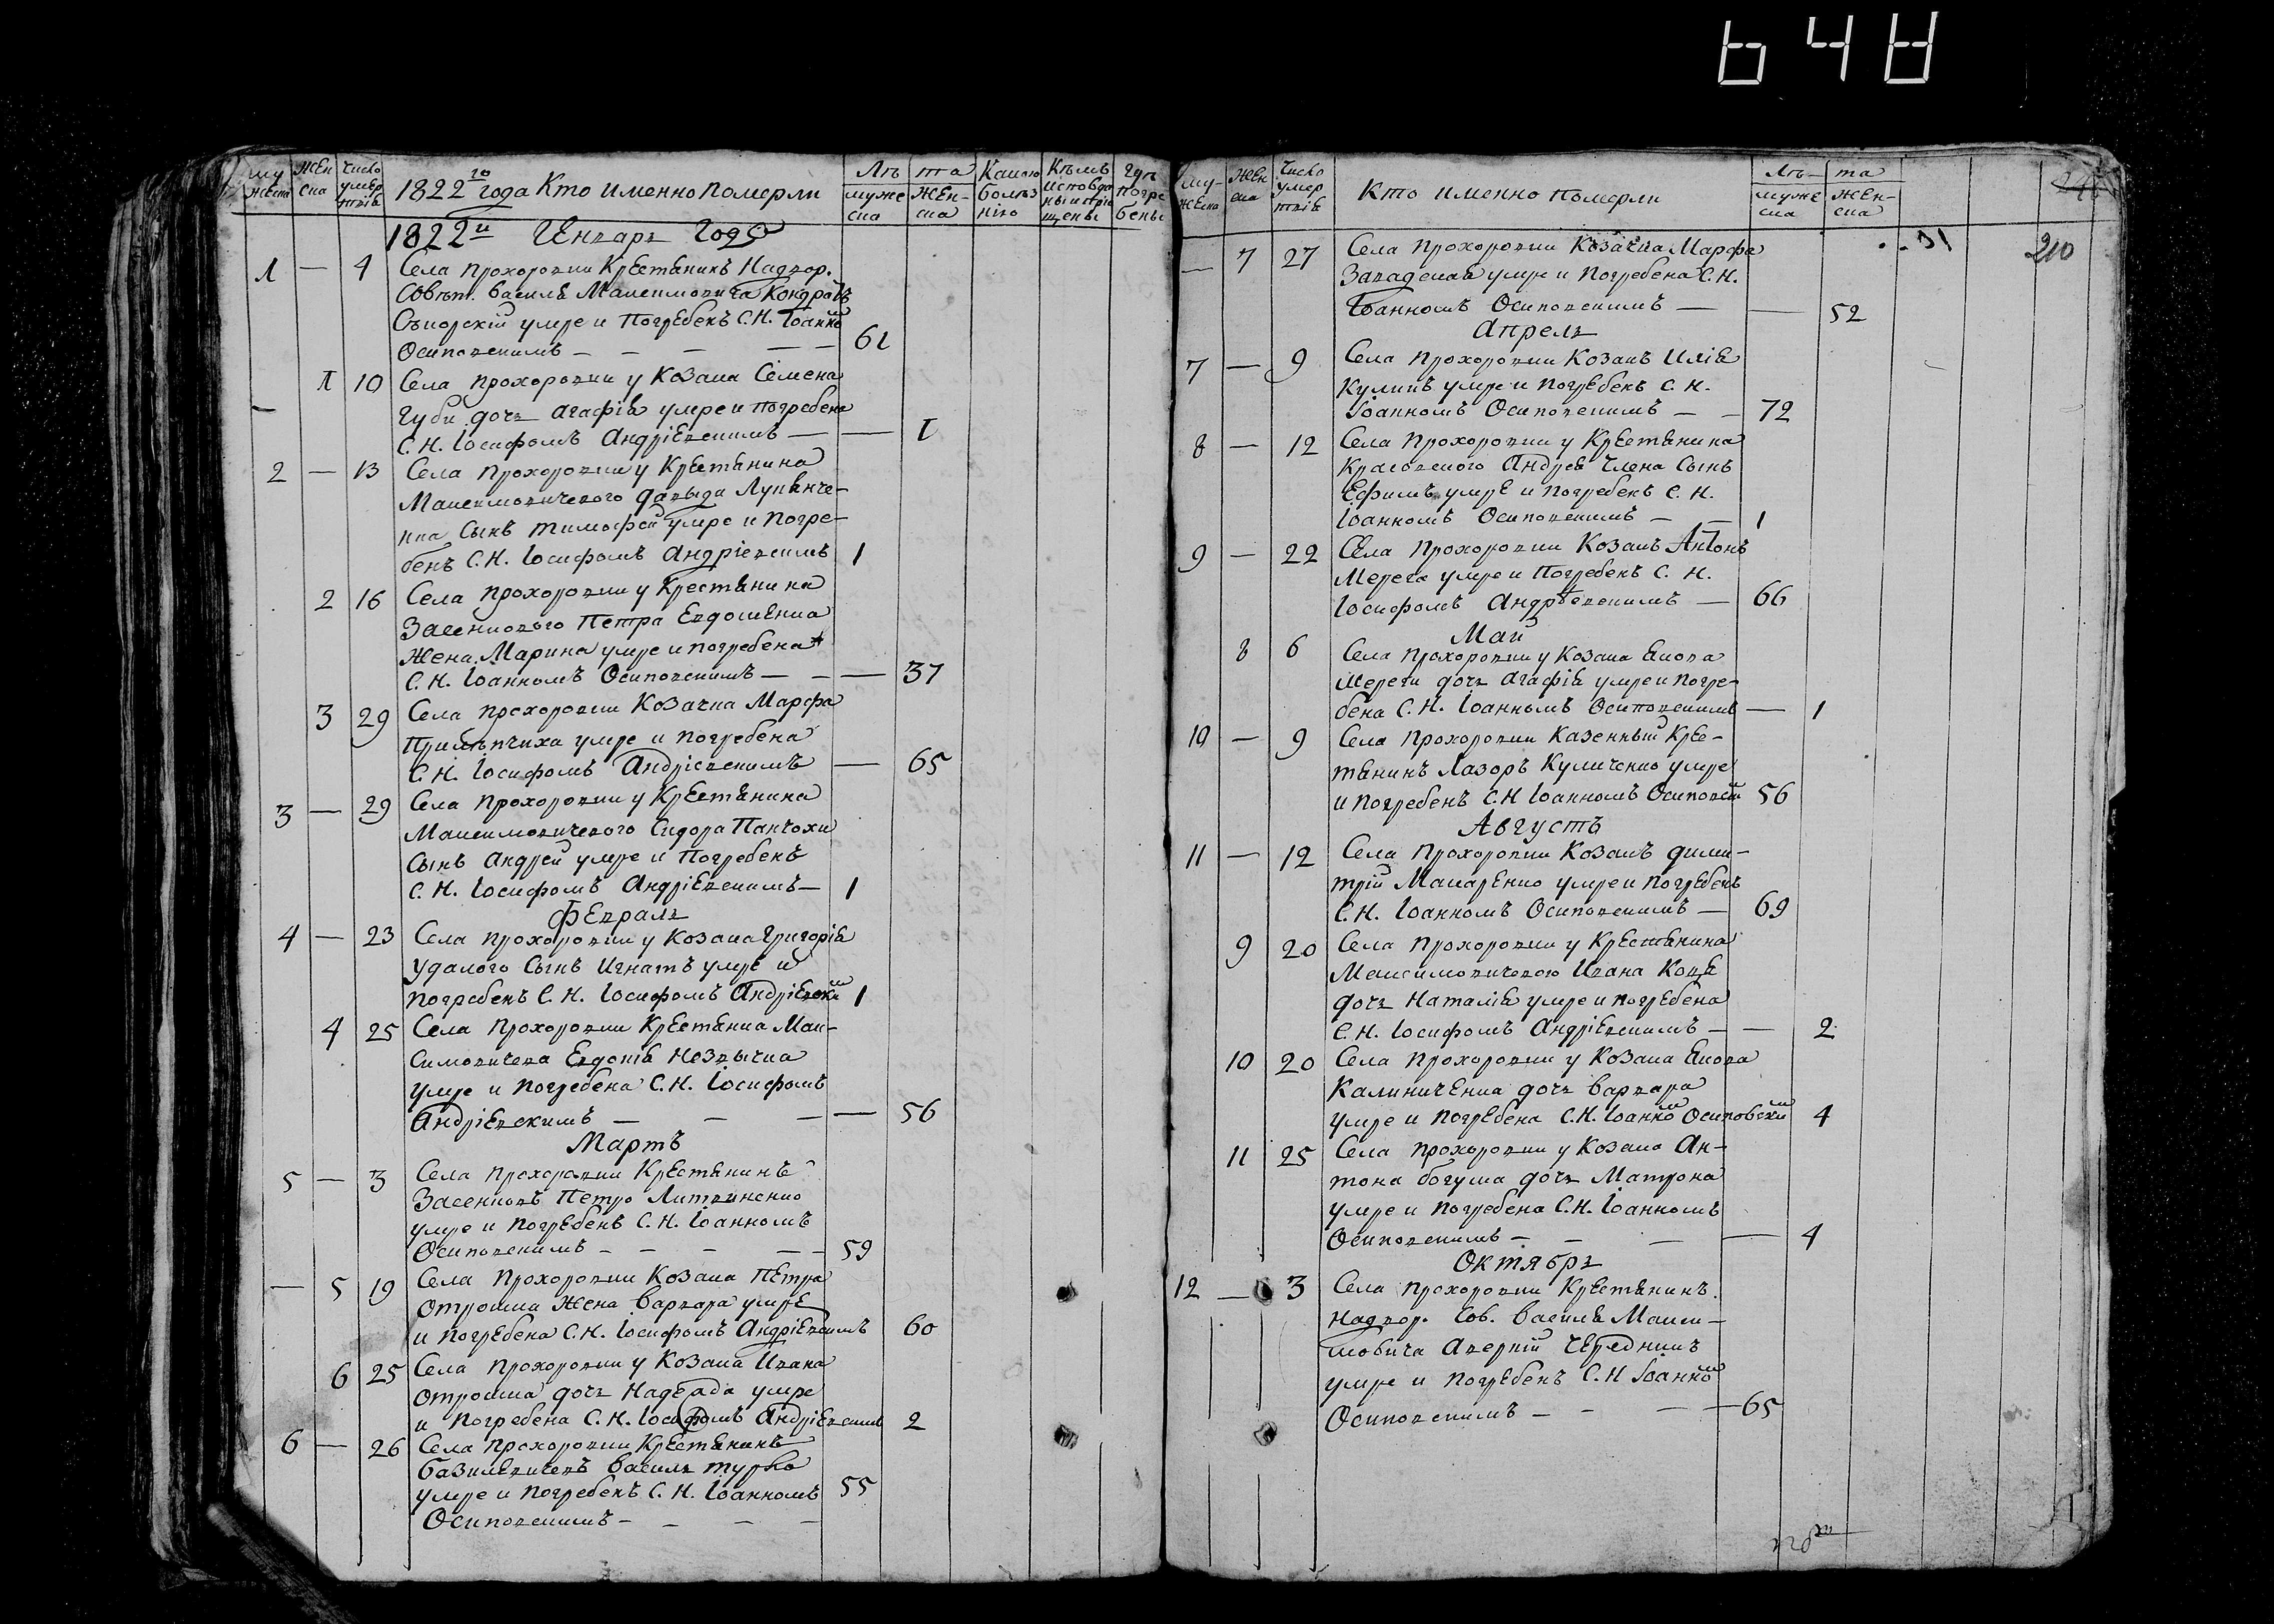 648
му жеска
Жен ска
Число умертвiя
1822го года Кто именно померли
Лѣ та
муже ска
жен- ска
Какою болѣзнiю
Кѣмъ исповѣданы и прiобщены
Гдѣ погребены
1822й Генварь Года
1 — 4 Села Прохоровки Крестянинъ Надвор.
Совѣт. Василя Максимовича Кондратъ
Сѣкорскiй умре и Погребенъ С.Н. Iоанно
Осиповскимъ — — — — — 61
1 10 Села Прохоровки у Козака Семена
Губи дочь Агафiя умре и погребена
С.Н. Iосифомъ Андрiевскимъ — — 1
2 — 13 Села Прохоровки у Крестянина
Максимовичевого Давыда Лупянче-
нка Сынъ Тимофей умре и Погре-
бенъ С.Н. Iосифомъ Андрiевскимъ 1
2 16 Села Прохоровки у Крестянина
Засенкового Петра Евдошенка
Жена Марина умре и погребена
С.Н. Iоанномъ Осиповскимъ — — — 37
3 29 Села Прохоровки Козачка Марфа
умре и погребена
С.Н. Iосифомъ Андрiевскимъ — 65
3 — 29 Села Прохоровки у Крестянина
Максимовичевого Сидора Панчохи
Сынъ Андрей умре и Погребенъ
С.Н. Iосифомъ Андрiевскимъ — 1
Февраль
4 — 23 Села Прохоровки у Козака Григорiя
Удалого Сынъ Игнатъ умре и
погребенъ С.Н. Iосифомъ Андрiевски 1
4 25 Села Прохоровки Крестянка Мак-
симовичева Евдокiя Незвычка
умре и погребена С.Н. Iосифомъ
Андрiевскимъ — — — — 56
Мартъ
5 — 3 Села Прохоровки Крестянинъ
Засенковъ Петро Литвиненко
умре и погребенъ С.Н. Iоанномъ
Осиповскимъ — — — — — 59
— 5 19 Села Прохоровки Козака Петра
Отрошка Жена Варвара умре
и погребена С.Н. Iосифомъ Андрiевскимъ 60
6 25 Села Прохоровки у Козака Ивана
Отрошка дочь Надежда умре
и Погребена С.Н. Iосифомъ Андрiевским 2
6 — 26 Села Прохоровки Крестянинъ
Базилевичевъ Василь Турко
умре и погребенъ С.Н. Iоанномъ 55
Осиповскимъ — — — —
му- жеска
Жен ска
Число умертвiя
Кто именно померли
Лѣ- та
муже ска
жен- ска
210
— 7 27 Села Прохоровки Козачка Марфа
Западская умре и Погребена С.Н.
Iоанномъ Осиповскимъ — — 52
Апрель
7 — 9 Села Прохоровки Козакъ Илiя
Куликъ умре и погребенъ С.Н.
Iоанномъ Осиповскимъ — — 72
8 — 12 Села Прохоровки у Крестянина
Красовского Андрея Члена Сынъ
Ефимъ умре и погребенъ С.Н.
Iоанномъ Осиповскимъ — — 1
9 — 22 Села Прохоровки Козакъ Антонъ
Мерега умре и Погребенъ С.Н.
Iосифомъ Андрѣевскимъ — 66
Май
8 6 Села Прохоровки у Козака Якова
Мереги дочь Агафiя умре и погре-
бена С.Н. Iоанномъ Осиповскимъ — 1
10 — 9 Села Прохоровки Казенный Крес-
тянинъ Лазоръ Куличенко умре
и погребенъ С.Н Iоанномъ Осиповски 56
Августъ
11 — 12 Села Прохоровки Козакъ Дими-
трiй Макаренко умре и погребенъ
С.Н. Iоанномъ Осиповскимъ — 69
9 20 Села Прохоровки у Крестянина
Максимовичевого Ивана
дочь Наталiя умре и погребена
С.Н. Iосифомъ Андрiевскимъ — — 2
10 20 Села Прохоровки у Козака Якова
Калиниченка дочь Варвара
умре и погребена С.Н. Iоанно Осиповски 4
11 25 Села Прохоровки у Козака Ан-
тона Богуша дочь Матрона
умре и погребена С.Н. Iоанномъ
Осиповскимъ — — — — 4
Октябрь
12 — 3 Села Прохоровки Крестянинъ
Надвор. Сов. Василя Макси-
мовича Аверкiй Чередникъ
умре и погребенъ С.Н Iоанно
Осиповскимъ — — — — 65